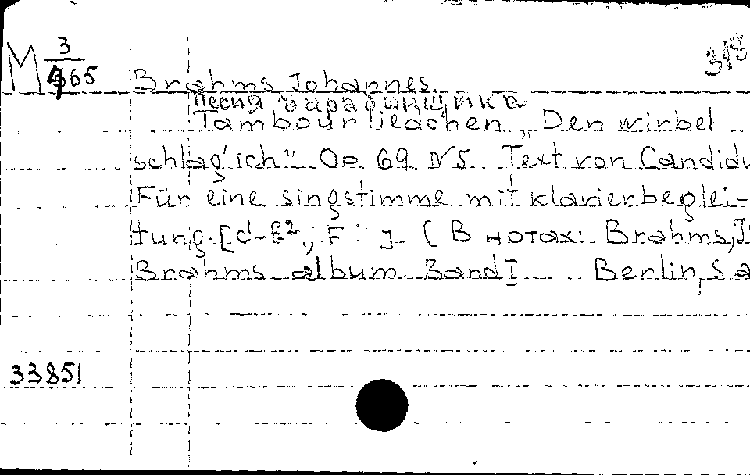 M 3/465
318
Brahms Johannes.
Песня барабанщика
Tambourliedchen „Den wirbel
schlag' ich" Op. 69 N5. Text von Candidu
Für eine singstimme mit klavierbeglei-
tung. [d-f², F : ]. (В нотах: Brahms, I.
Brahms album Band I ... Berlin, S a
33851